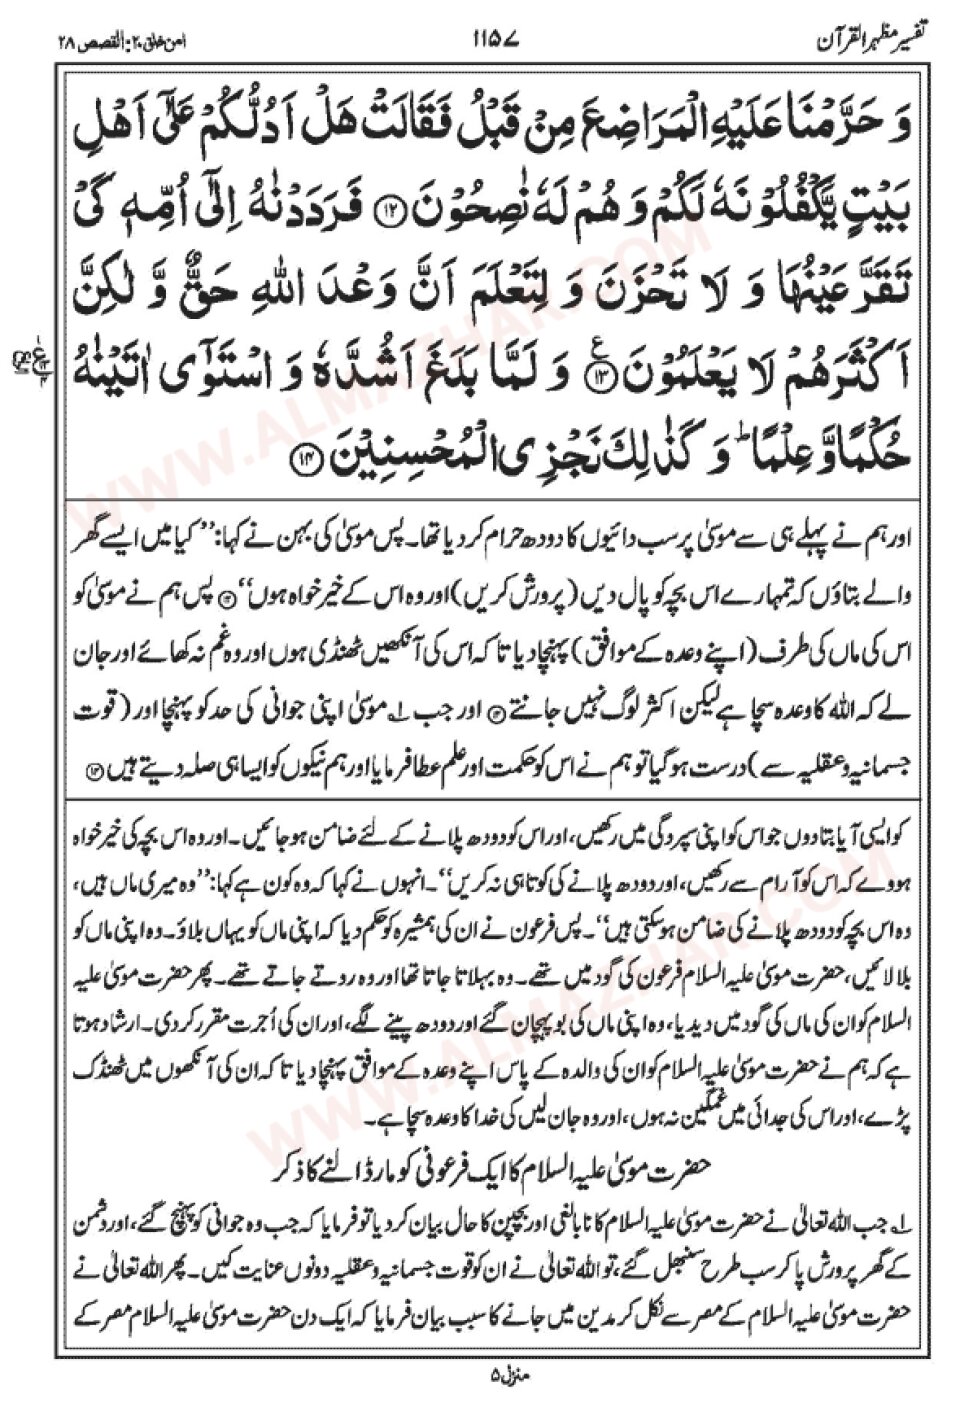 تفسیر مظہر القرآن
۱۱۵۷
امن خلق ۲۰: القصص ۲۸
وَ حَرَّمْنَا عَلَیْهِ الْمَرَاضِعَ مِنْ قَبْلُ فَقَالَتْ هَلْ اَدُلُّكُمْ عَلٰۤى اَهْلِ
بَیْتٍ یَّكْفُلُوْنَهٗ لَكُمْ وَ هُمْ لَهٗ نٰصِحُوْنَ ۝۱۲ فَرَدَدْنٰهُ اِلٰۤى اُمِّهٖ كَیْ
تَقَرَّ عَیْنُهَا وَ لَا تَحْزَنَ وَ لِتَعْلَمَ اَنَّ وَعْدَ اللّٰهِ حَقٌّ وَّ لٰكِنَّ
اَكْثَرَهُمْ لَا یَعْلَمُوْنَ ۝۱۳ع وَ لَمَّا بَلَغَ اَشُدَّهٗ وَ اسْتَوٰۤى اٰتَیْنٰهُ
حُكْمًا وَّ عِلْمًا ؕ وَ كَذٰلِكَ نَجْزِی الْمُحْسِنِیْنَ ۝۱۴
اور ہم نے پہلے ہی سے موسیٰ پر سب دائیوں کا دودھ حرام کر دیا تھا۔ پس موسیٰ کی بہن نے کہا: ’’کیا میں ایسے گھر
والے بتاؤں کہ تمہارے اس بچہ کو پال دیں (پرورش کریں) اور وہ اس کے خیر خواہ ہوں‘‘ ۝۱۲ پس ہم نے موسیٰ کو
اس کی ماں کی طرف (اپنے وعدہ کے موافق) پہنچا دیا تا کہ اس کی آنکھیں ٹھنڈی ہوں اور وہ غم نہ کھائے اور جان
لے کہ اللہ کا وعدہ سچا ہے لیکن اکثر لوگ نہیں جانتے ۝۱۳ اور جب ۱؎ موسیٰ اپنی جوانی کی حد کو پہنچا اور (قوت
جسمانیہ و عقلیہ سے) درست ہو گیا تو ہم نے اس کو حکمت اور علم عطا فرمایا اور ہم نیکوں کو ایسا ہی صلہ دیتے ہیں ۝۱۴
کو ایسی آیا بتا دوں جو اس کو اپنی سپردگی میں رکھیں، اور اس کو دودھ پلانے کے لئے ضامن ہو جائیں۔ اور وہ اس بچہ کی خیر خواہ
ہووے کہ اس کو آرام سے رکھیں، اور دودھ پلانے کی کوتاہی نہ کریں‘‘۔ انہوں نے کہا کہ وہ کون ہے کہا: ’’وہ میری ماں ہیں،
وہ اس بچہ کو دودھ پلانے کی ضامن ہو سکتی ہیں‘‘۔ پس فرعون نے ان کی ہمشیرہ کو حکم دیا کہ اپنی ماں کو یہاں بلاؤ۔ وہ اپنی ماں کو
بلا لائیں، حضرت موسیٰ علیہ السلام فرعون کی گود میں تھے۔ وہ بہلاتا جاتا تھا اور وہ روتے جاتے تھے۔ پھر حضرت موسیٰ علیہ
السلام کو ان کی ماں کی گود میں دیدیا، وہ اپنی ماں کی بو پہچان گئے اور دودھ پینے لگے، اور ان کی اُجرت مقرر کر دی۔ ارشاد ہوتا
ہے کہ ہم نے حضرت موسیٰ علیہ السلام کو ان کی والدہ کے پاس اپنے وعدہ کے موافق پہنچا دیا تا کہ ان کی آنکھوں میں ٹھنڈک
پڑے، اور اس کی جدائی میں غمگین نہ ہوں، اور وہ جان لیں کی خدا کا وعدہ سچا ہے۔
حضرت موسیٰ علیہ السلام کا ایک فرعونی کو مار ڈالنے کا ذکر
۱؎ جب اللہ تعالیٰ نے حضرت موسیٰ علیہ السلام کا نابالغی اور بچپن کا حال بیان کر دیا تو فرمایا کہ جب وہ جوانی کو پہنچ گئے، اور دشمن
کے گھر پرورش پا کر سب طرح سنبھل گئے، تو اللہ تعالیٰ نے ان کو قوت جسمانیہ و عقلیہ دونوں عنایت کیں۔ پھر اللہ تعالیٰ نے
حضرت موسیٰ علیہ السلام کے مصر سے نکل کر مدین میں جانے کا سبب بیان فرمایا کہ ایک دن حضرت موسیٰ علیہ السلام مصر کے
منزل ۵
WWW.ALMAZHAR.COM
WWW.ALMAZHAR.COM